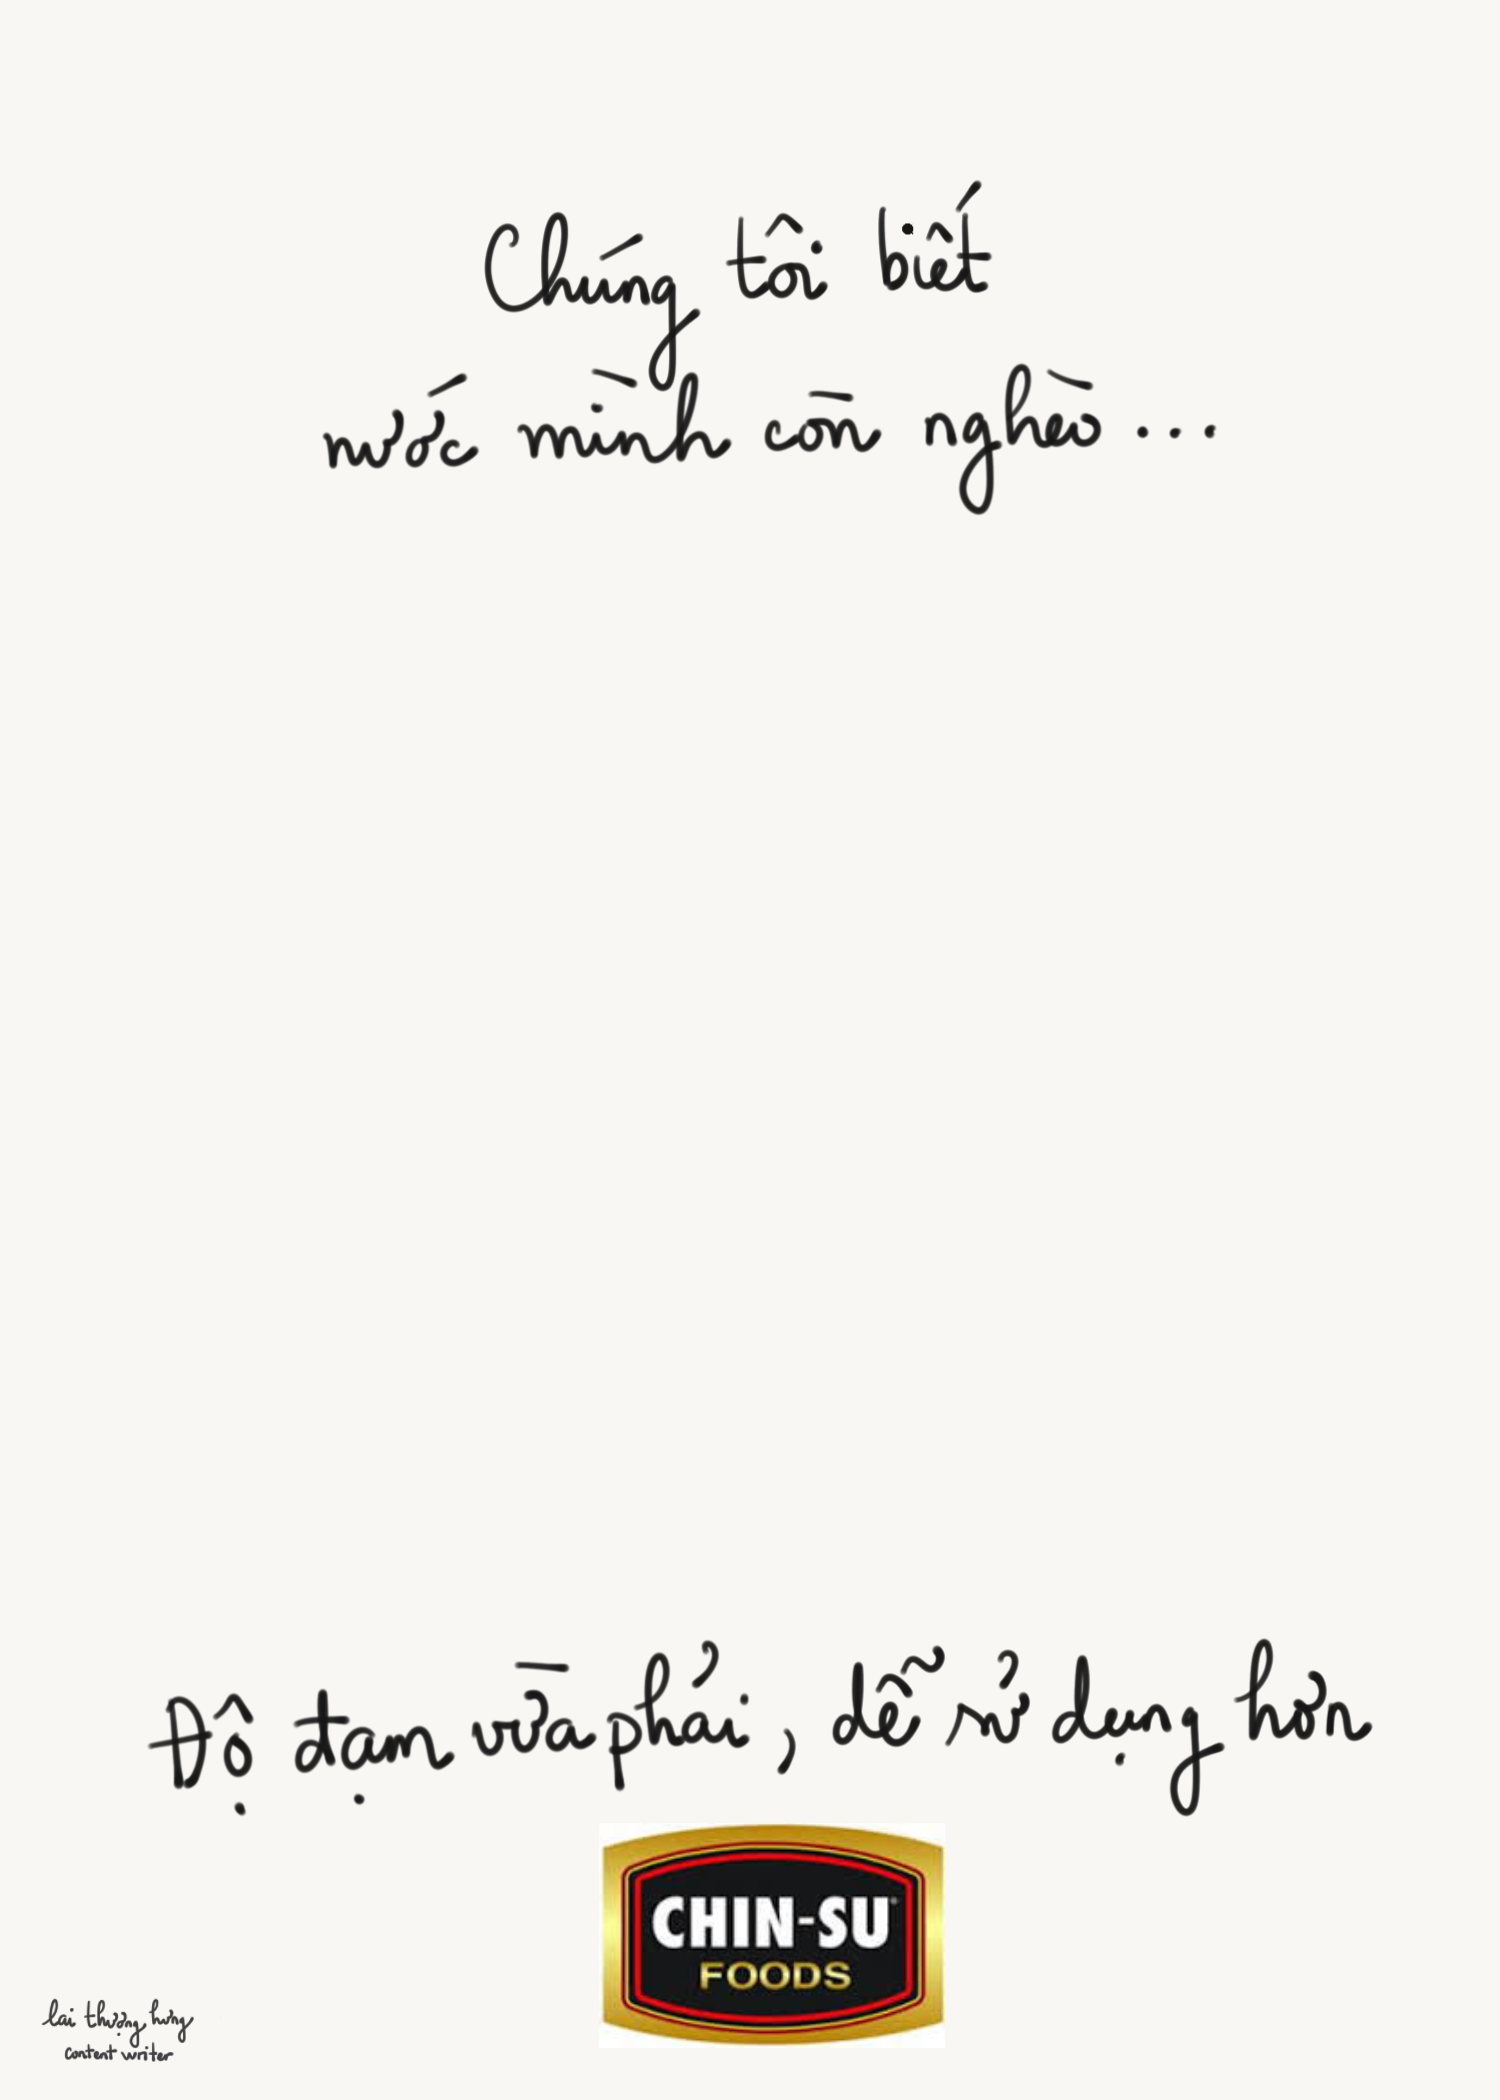 Chúng tôi biết
nước mình còn nghèo...
Độ đạm vừa phải, dễ sử dụng hơn
CHIN-SU
FOODS
lai thượng hưng
content writer